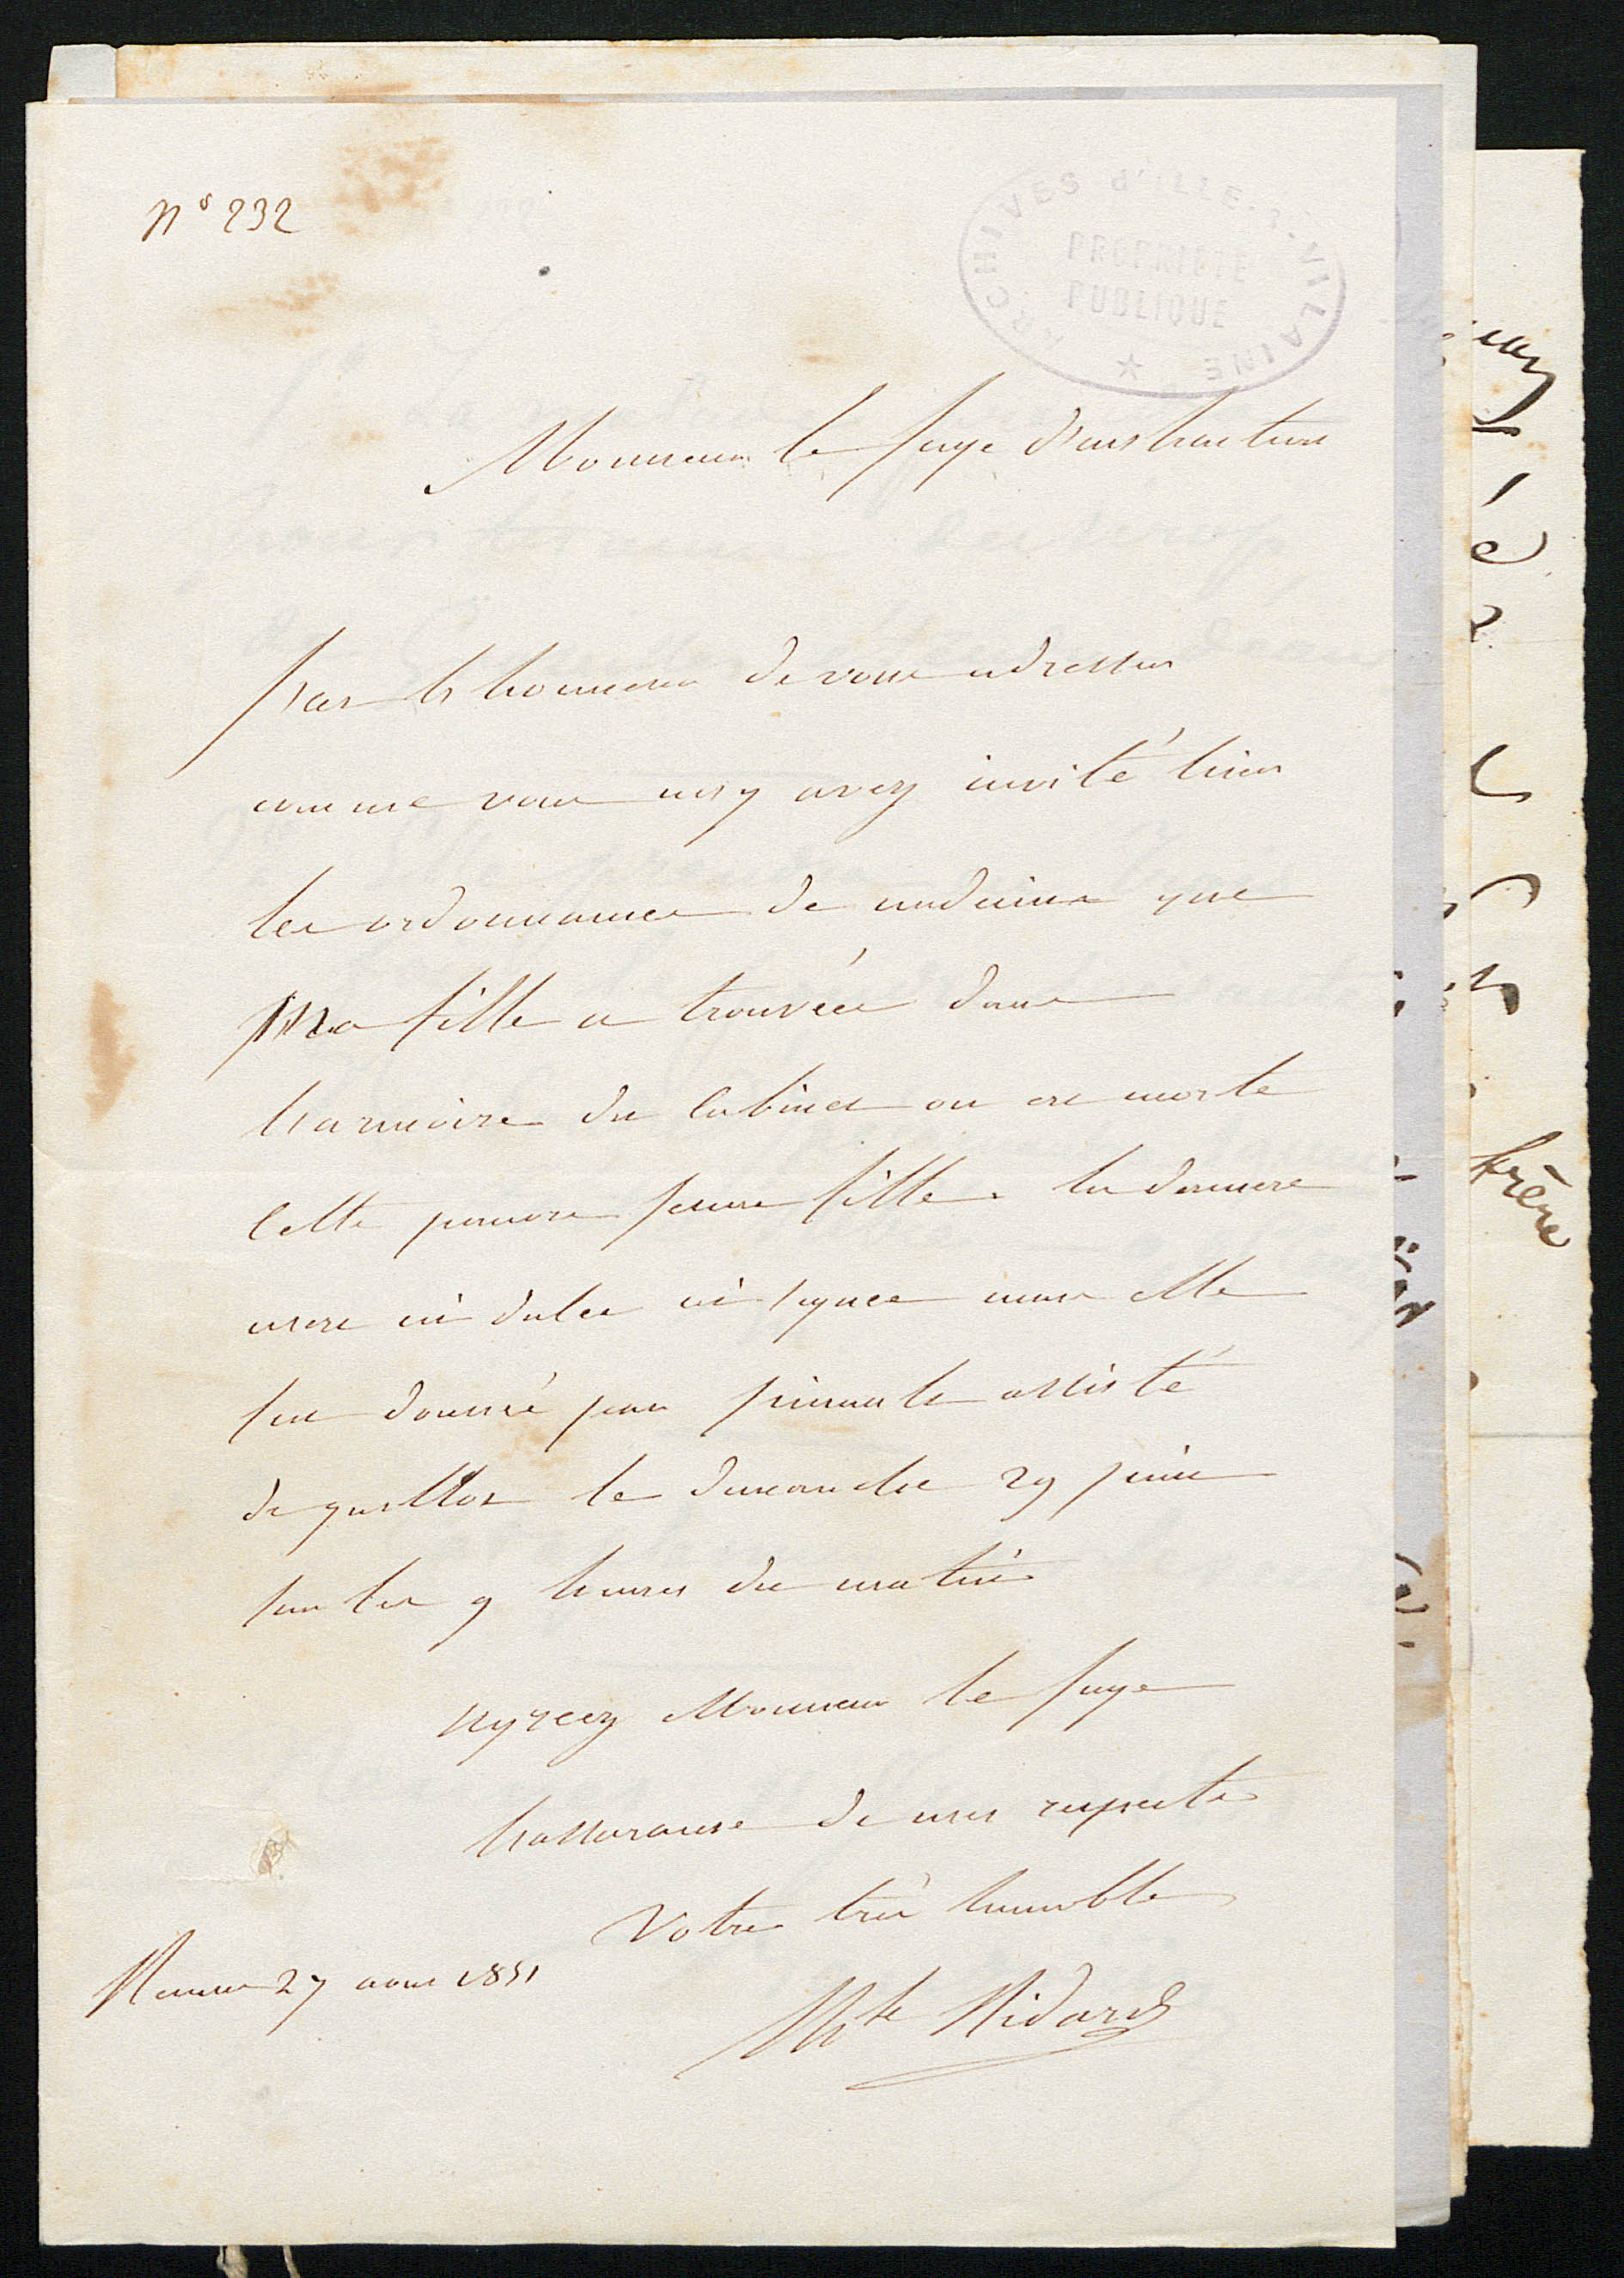 N° 232
ARCHIVES d'ILLE-&-VILAINE
PROPRIÉTÉ
PUBLIQUE
Monsieur le juge d'instruction
j'ai l'honneur de vous adresser
comme vous m'y avez invité hier
les ordonnances de médecine que
Ma fille a trouvées dans
l'armoire du Cabinet ou est morte
cette pauvre jeune fille. la dernière
n'est ni datée ni signée mais elle
fut donné par pinault assisté
de guillot le dimanche 29 juin
sur les 9 heures du matin
agréez Monsieur le juge
l'assurance de mes respects
Votre très humble
Rennes 27 aout 1851
Mte Ridard
frère